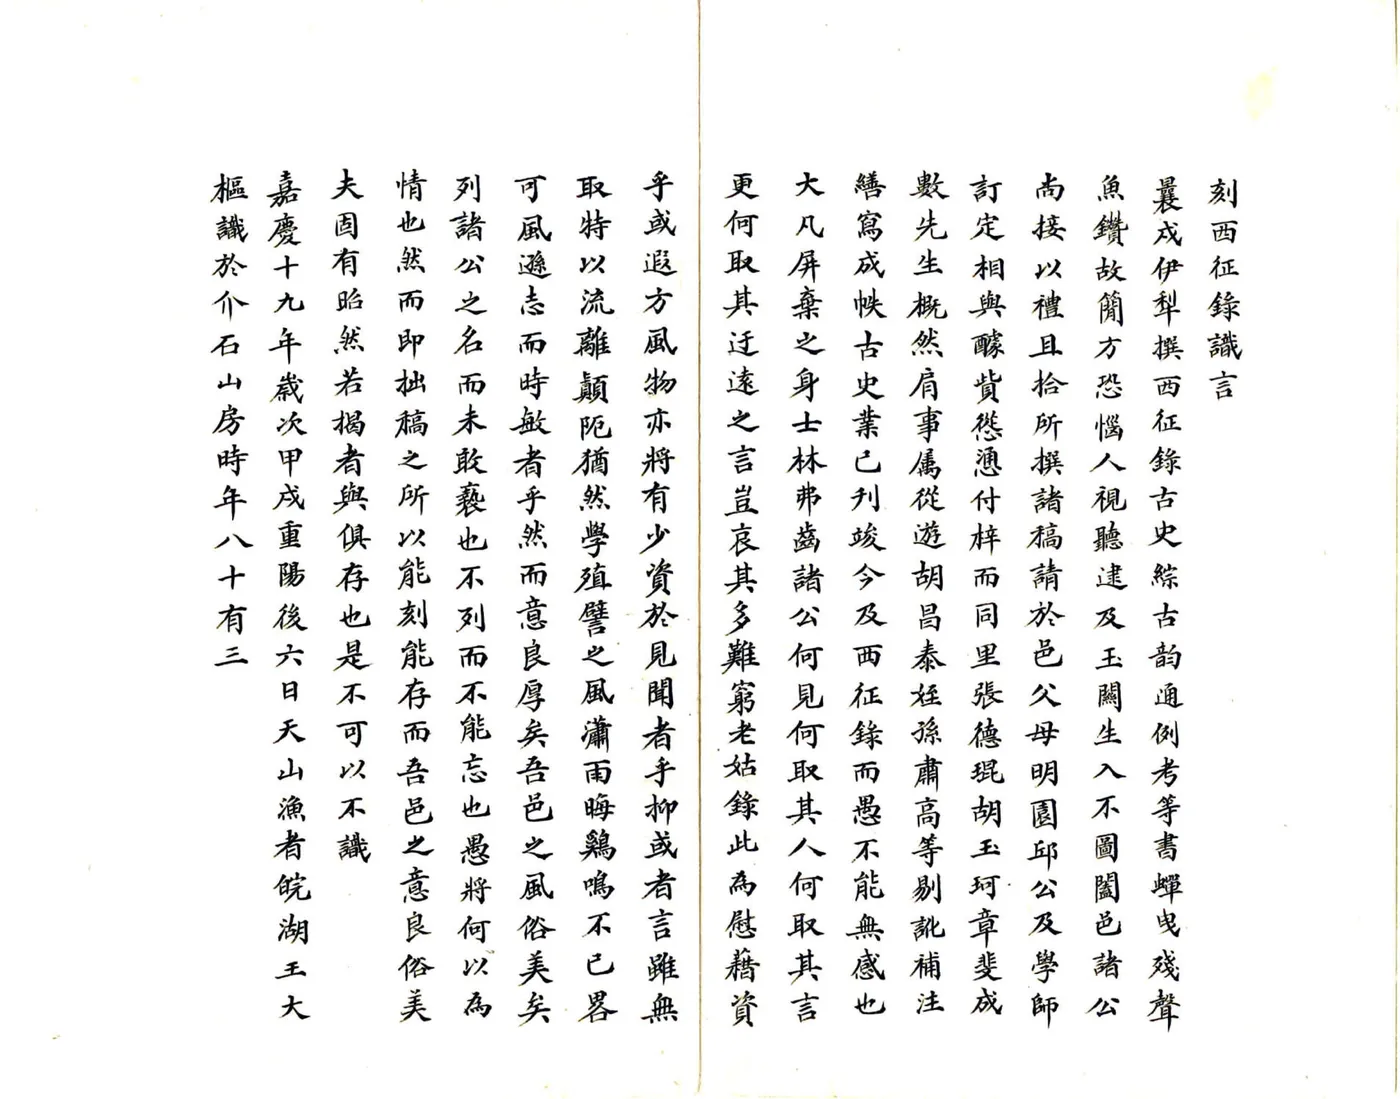 刻西征錄識言
曩戍伊犁撰西征錄古史綜古韵通例考等書蟬曳殘聲
魚鑽故簡方恐惱人視聽逮及玉關生入不圖闔邑諸公
尚接以禮且拾所撰諸稿請於邑父母明園邱公及學師
訂定相與醵貲慫慂付梓而同里張德琨胡玉珂章斐成
數先生概然肩事属從遊胡昌泰姪孫肅高等剔訛補注
繕寫成帙古史業已刋竣今及西征錄而愚不能無感也
大凡屏棄之身士林弗齒諸公何見何取其人何取其言
更何取其迂遠之言豈哀其多難窮老姑錄此為慰藉資
乎或遐方風物亦將有少資於見聞者乎抑或者言雖無
取特以流離顛阨猶然學殖譬之風瀟雨晦鷄鳴不已畧
可風遜志而時敏者乎然而意良厚矣吾邑之風俗美矣
列諸公之名而未敢褻也不列而不能忘也愚將何以為
情也然而即拙稿之所以能刻能存而吾邑之意良俗美
夫固有昭然若揭者與俱存也是不可以不識
嘉慶十九年歲次甲戌重陽後六日天山漁者皖湖王大
樞識於介石山房時年八十有三